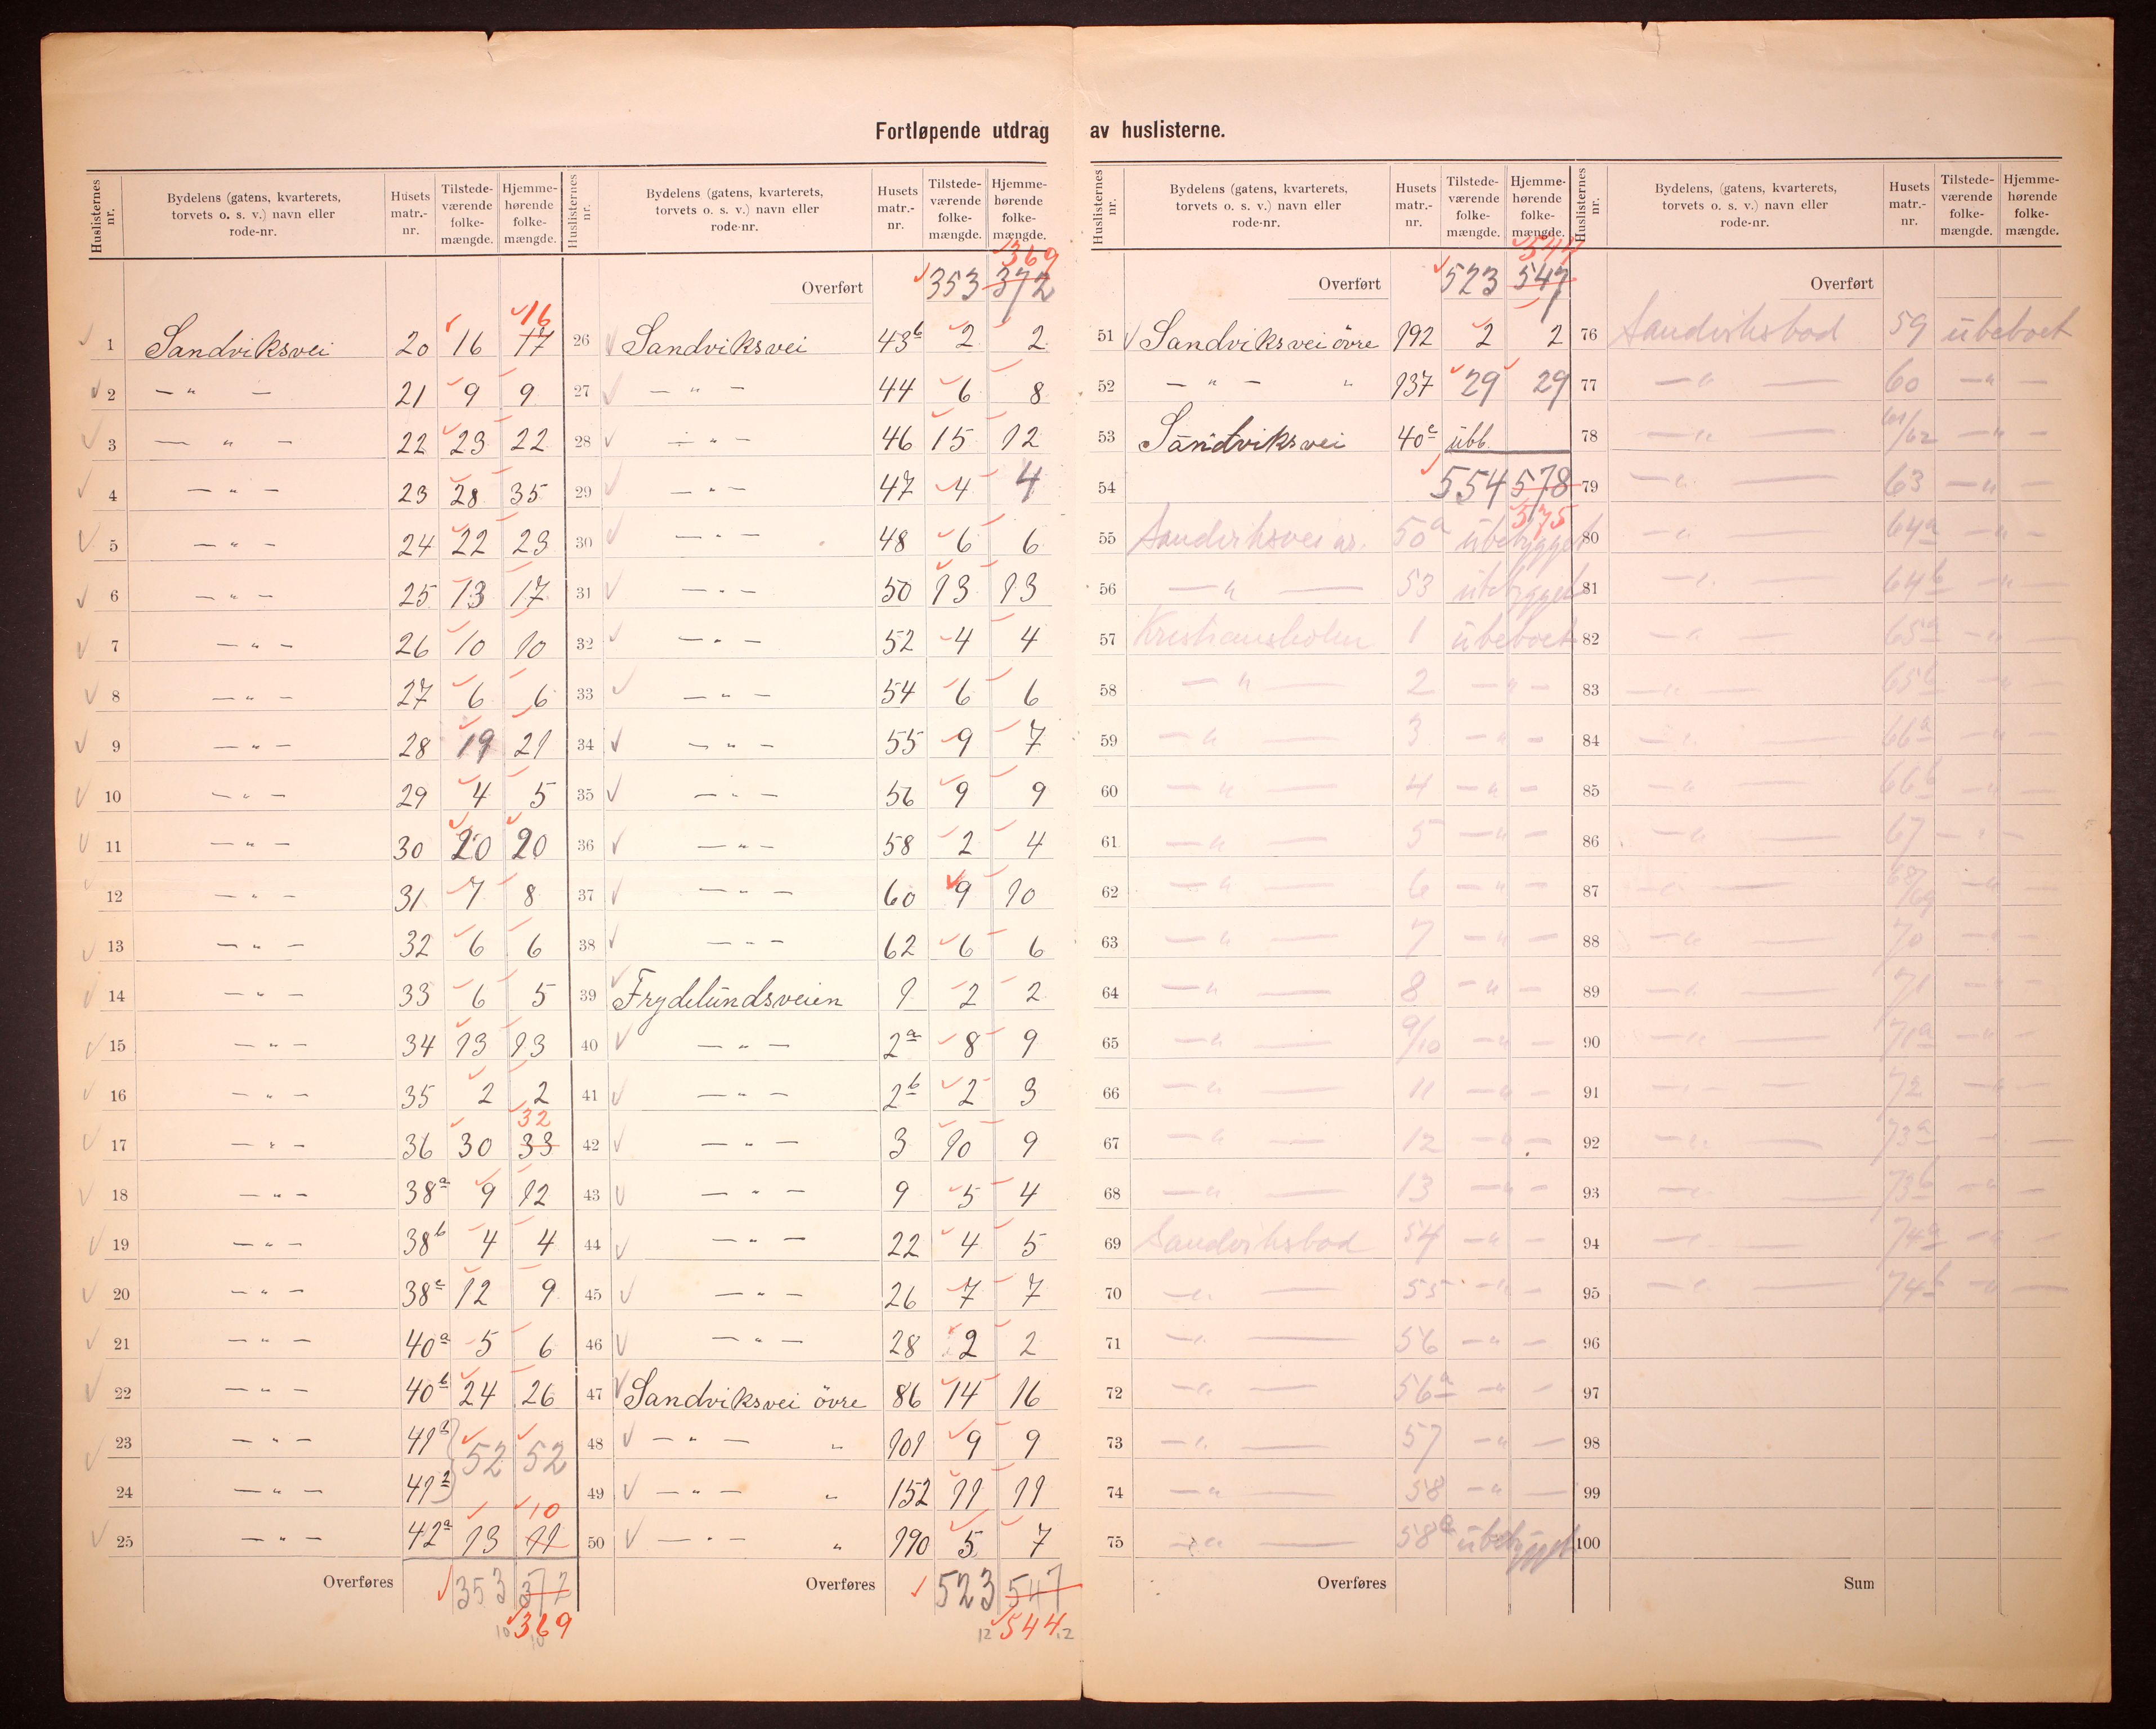 Fortløpende utdrag av huslisterne.
Huslisternes nr. | Bydelens (gatens, kvarterets, torvets o. s. v.) navn eller rode-nr. | Husets matr.-nr. | Tilstedeværende folkemængde. | Hjemmehørende folkemængde.
1 Sandviksvei 20 16 17 16
2 — " — 21 9 9
3 — " — 22 23 22
4 — " — 23 28 35
5 — " — 24 22 23
6 — " — 25 13 17
7 — " — 26 10 10
8 — " — 27 6 6
9 — " — 28 19 21
10 — " — 29 4 5
11 — " — 30 20 20
12 — " — 31 7 8
13 — " — 32 6 6
14 — " — 33 6 5
15 — " — 34 13 13
16 — " — 35 2 2
17 — " — 36 30 33 32
18 — " — 38a 9 12
19 — " — 38b 4 4
20 — " — 38c 12 9
21 — " — 40a 5 6
22 — " — 40b 24 26
23 — " — 41 52 52
24 — " — 41
25 — " — 42a 13 11 10
Overføres 353 372
369
Huslisternes nr. | Bydelens (gatens, kvarterets, torvets o. s. v.) navn eller rode-nr. | Husets matr.-nr. | Tilstedeværende folkemængde. | Hjemmehørende folkemængde.
369
Overført 353 372
26 Sandviksvei 43b 2 2
27 — " — 44 6 8
28 — " — 46 15 12
29 — " — 47 4 4
30 — " — 48 6 6
31 — " — 50 13 13
32 — " — 52 4 4
33 — " — 54 6 6
34 — " — 55 9 7
35 — " — 56 9 9
36 — " — 58 2 4
37 — " — 60 9 10
38 — " — 62 6 6
39 Frydelundsveien 1 2 2
40 — " — 2a 8 9
41 — " — 2b 2 3
42 — " — 3 10 9
43 — " — 9 5 4
44 — " — 22 4 5
45 — " — 26 7 7
46 — " — 28 2 2
47 Sandviksvei övre 86 14 16
48 — " — " 101 9 9
49 — " — " 152 11 11
50 — " — " 190 5 7
Overføres 523 547
544
Huslisternes nr. | Bydelens (gatens, kvarterets, torvets o. s. v.) navn eller rode-nr. | Husets matr.-nr. | Tilstedeværende folkemængde. | Hjemmehørende folkemængde.
544
Overført 523 547
51 Sandviksvei övre 192 2 2
52 — " — " 137 29 29
53 Sandviksvei 40c übb.
54 554 578
575
55 Sandviksvei nr. 50a übebygget
56 — " — 53 übebygget
57 Kristiansholm 1 übeboet
58 — " — 2 — " —
59 — " — 3 — " —
60 — " — 4 — " —
61 — " — 5 — " —
62 — " — 6 — " —
63 — " — 7 — " —
64 — " — 8 — " —
65 — " — 9/10 — " —
66 — " — 11 — " —
67 — " — 12 — " —
68 — " — 13 — " —
69 Sandviksbod 54 — " —
70 — " — 55 — " —
71 — " — 56 — " —
72 — " — 56a — " —
73 — " — 57 — " —
74 — " — 58 — " —
75 — " — 58a übebygget
Overføres
Huslisternes nr. | Bydelens, (gatens, kvarterets, torvets o. s. v.) navn eller rode-nr. | Husets matr.-nr. | Tilstedeværende folkemængde. | Hjemmehørende folkemængde.
Overført
76 Sandviksbod 59 übeboet
77 — " — 60 — " —
78 — " — 61/62 — " —
79 — " — 63 — " —
80 — " — 64a — " —
81 — " — 64b — " —
82 — " — 65a — " —
83 — " — 65b — " —
84 — " — 66a — " —
85 — " — 66b — " —
86 — " — 67 — " —
87 — " — 68/69 — " —
88 — " — 70 — " —
89 — " — 71 — " —
90 — " — 71a — " —
91 — " — 72 — " —
92 — " — 73a — " —
93 — " — 73b — " —
94 — " — 74a — " —
95 — " — 74b — " —
96
97
98
99
100
Sum